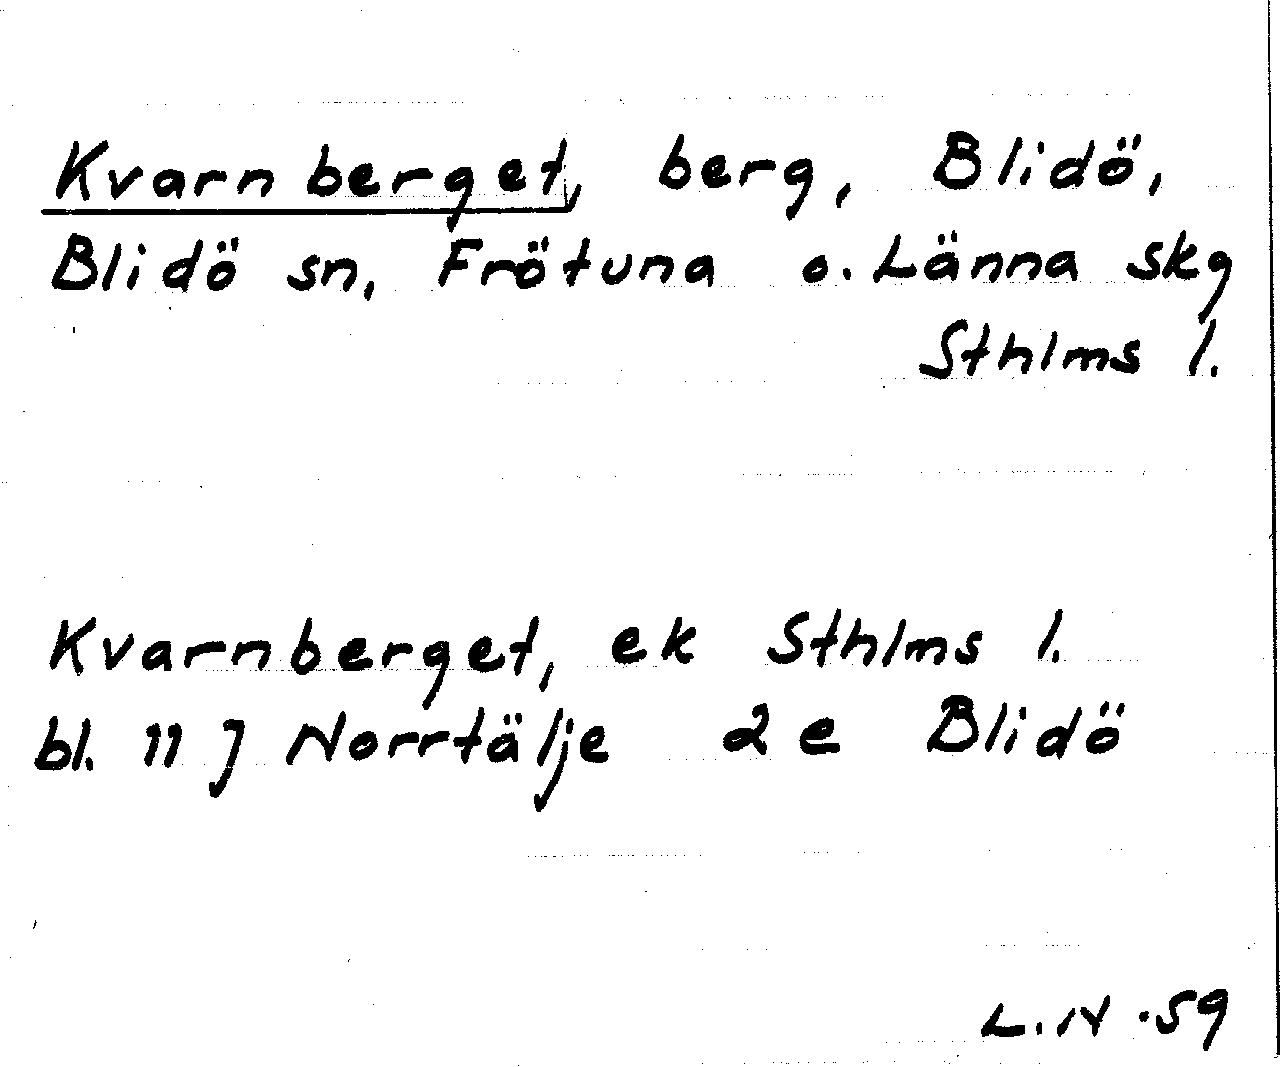 Kvarnberget, berg, Blidö,
Blidö sn, Frötuna o. Länna skg
Sthlms l.
Kvarnberget, ek Sthlms l.
bl. 11 J Norrtälje 2e Blidö
L.N.59